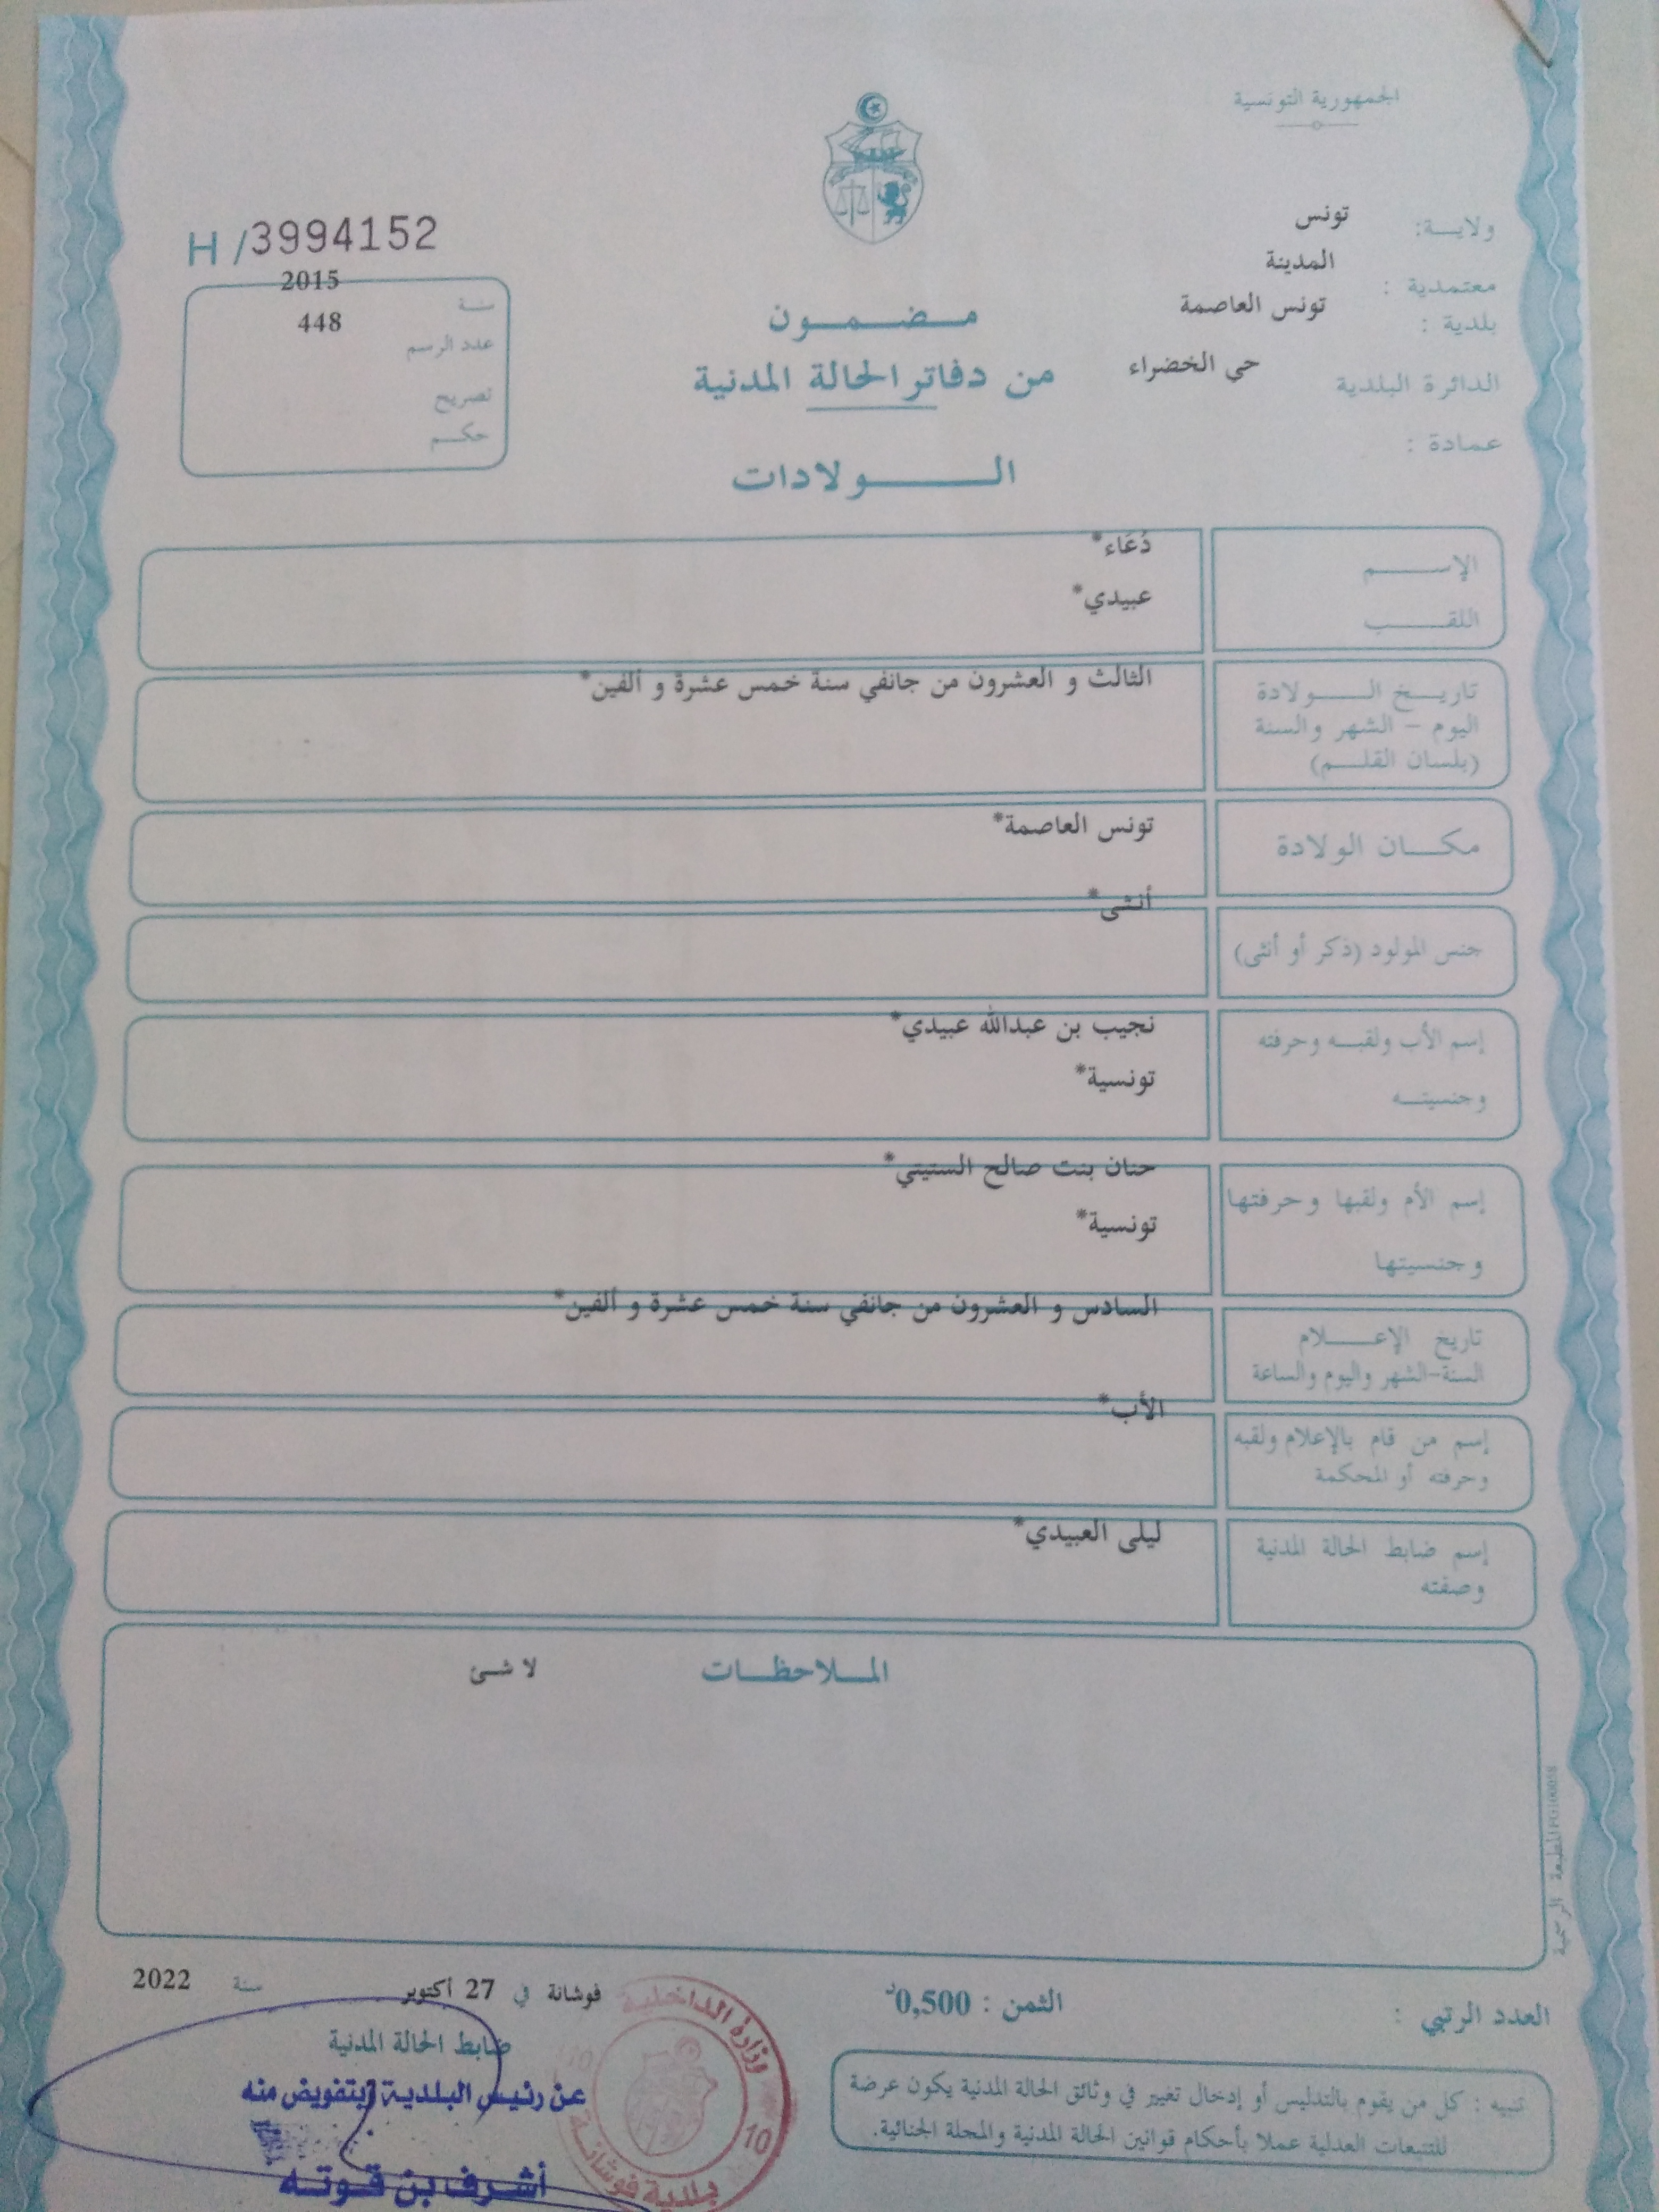 الجمهورية التونسية
ولايـــة: تونس
معتمدية : المدينة
بلدية : تونس العاصمة
الدائرة البلدية حي الخضراء
عمادة :
H/3994152
سنة 2015
عدد الرسم 448
تصريح
حكم
مضمون
من دفاتر الحالة المدنية
الولادات
الإسم دُعَاء*
اللقب عبيدي*
تاريخ الولادة الثالث و العشرون من جانفي سنة خمس عشرة و ألفين*
اليوم - الشهر والسنة
(بلسان القلم)
مكان الولادة تونس العاصمة*
جنس المولود (ذكر أو أنثى) أنثى*
إسم الأب ولقبه وحرفته نجيب بن عبدالله عبيدي*
وجنسيته تونسية*
إسم الأم ولقبها وحرفتها حنان بنت صالح الستيتي*
وجنسيتها تونسية*
تاريخ الإعلام السادس و العشرون من جانفي سنة خمس عشرة و ألفين*
السنة-الشهر واليوم والساعة
إسم من قام بالإعلام ولقبه الأب*
وحرفته أو المحكمة
إسم ضابط الحالة المدنية ليلى العبيدي*
وصفته
الملاحظات لا شئ
المطبعة الرسمية
العدد الرتبي :
الثمن : 0,500د
فوشانة في 27 أكتوبر سنة 2022
ضابط الحالة المدنية
عن رئيس البلدية وبتفويض منه
أشرف بن قوته
وزارة الداخلية
10
10
بلدية فوشانة
تنبيه : كل من يقوم بالتدليس أو إدخال تغيير في وثائق الحالة المدنية يكون عرضة
للتتبعات العدلية عملا بأحكام قوانين الحالة المدنية والمجلة الجنائية.